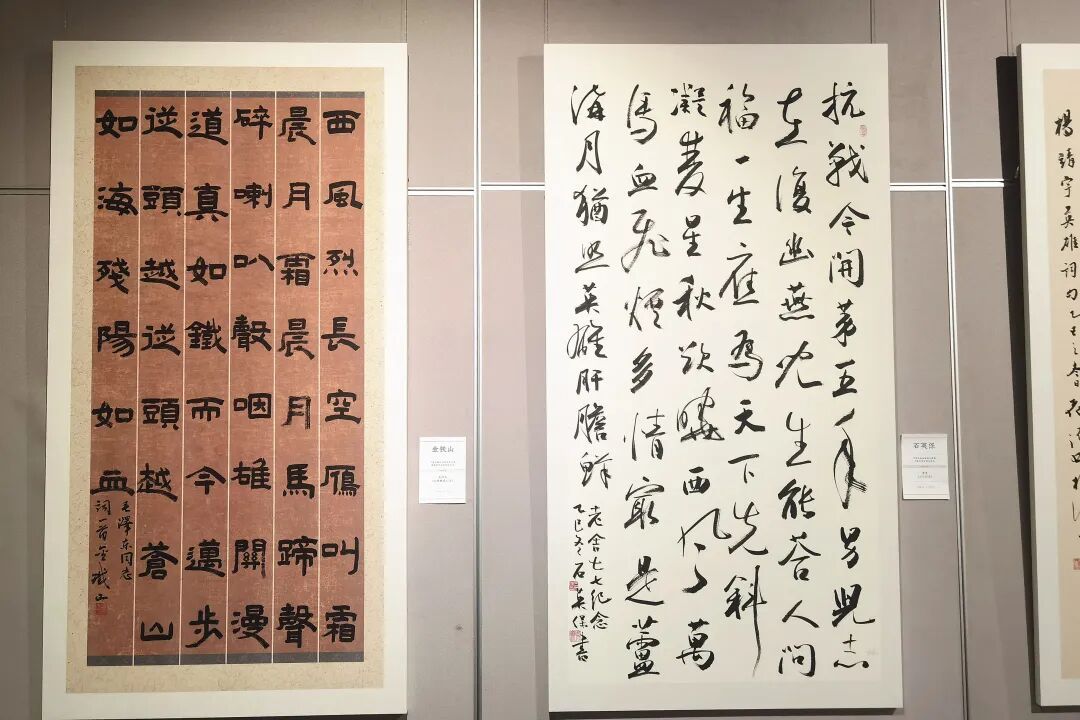 西風烈長空鴈叫霜
晨月霜晨月馬蹄聲
碎喇叭聲咽雄關漫
道真如鐵而今邁步
從頭越從頭越蒼山
如海殘陽如血
毛澤東同志
詞一首
抗戰今開第五年男兒志
在復幽燕生能答人間
福一生應為天下先斜
凝星秋欲曉西風萬
馬血飛煙多情最是蘆
溝月猶照英雄肝膽鮮
老舍七七紀念
乙巳冬石英保書
石英保
楊靖宇英雄詞句乙巳之春